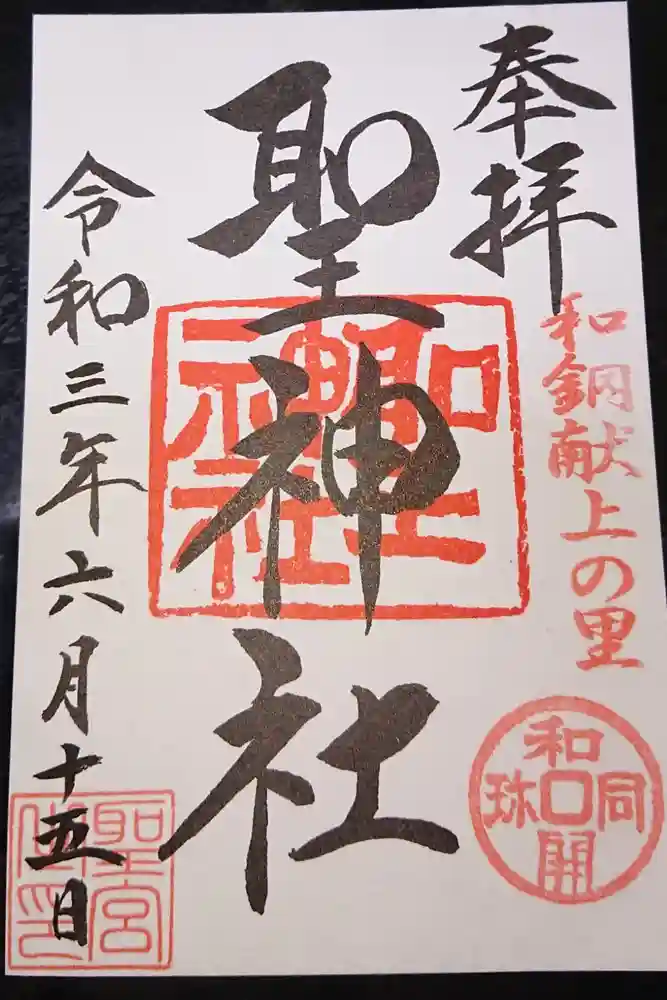 奉拝
和銅献上の里
和同開珎
聖神社
聖神社
令和三年六月十五日
聖宮